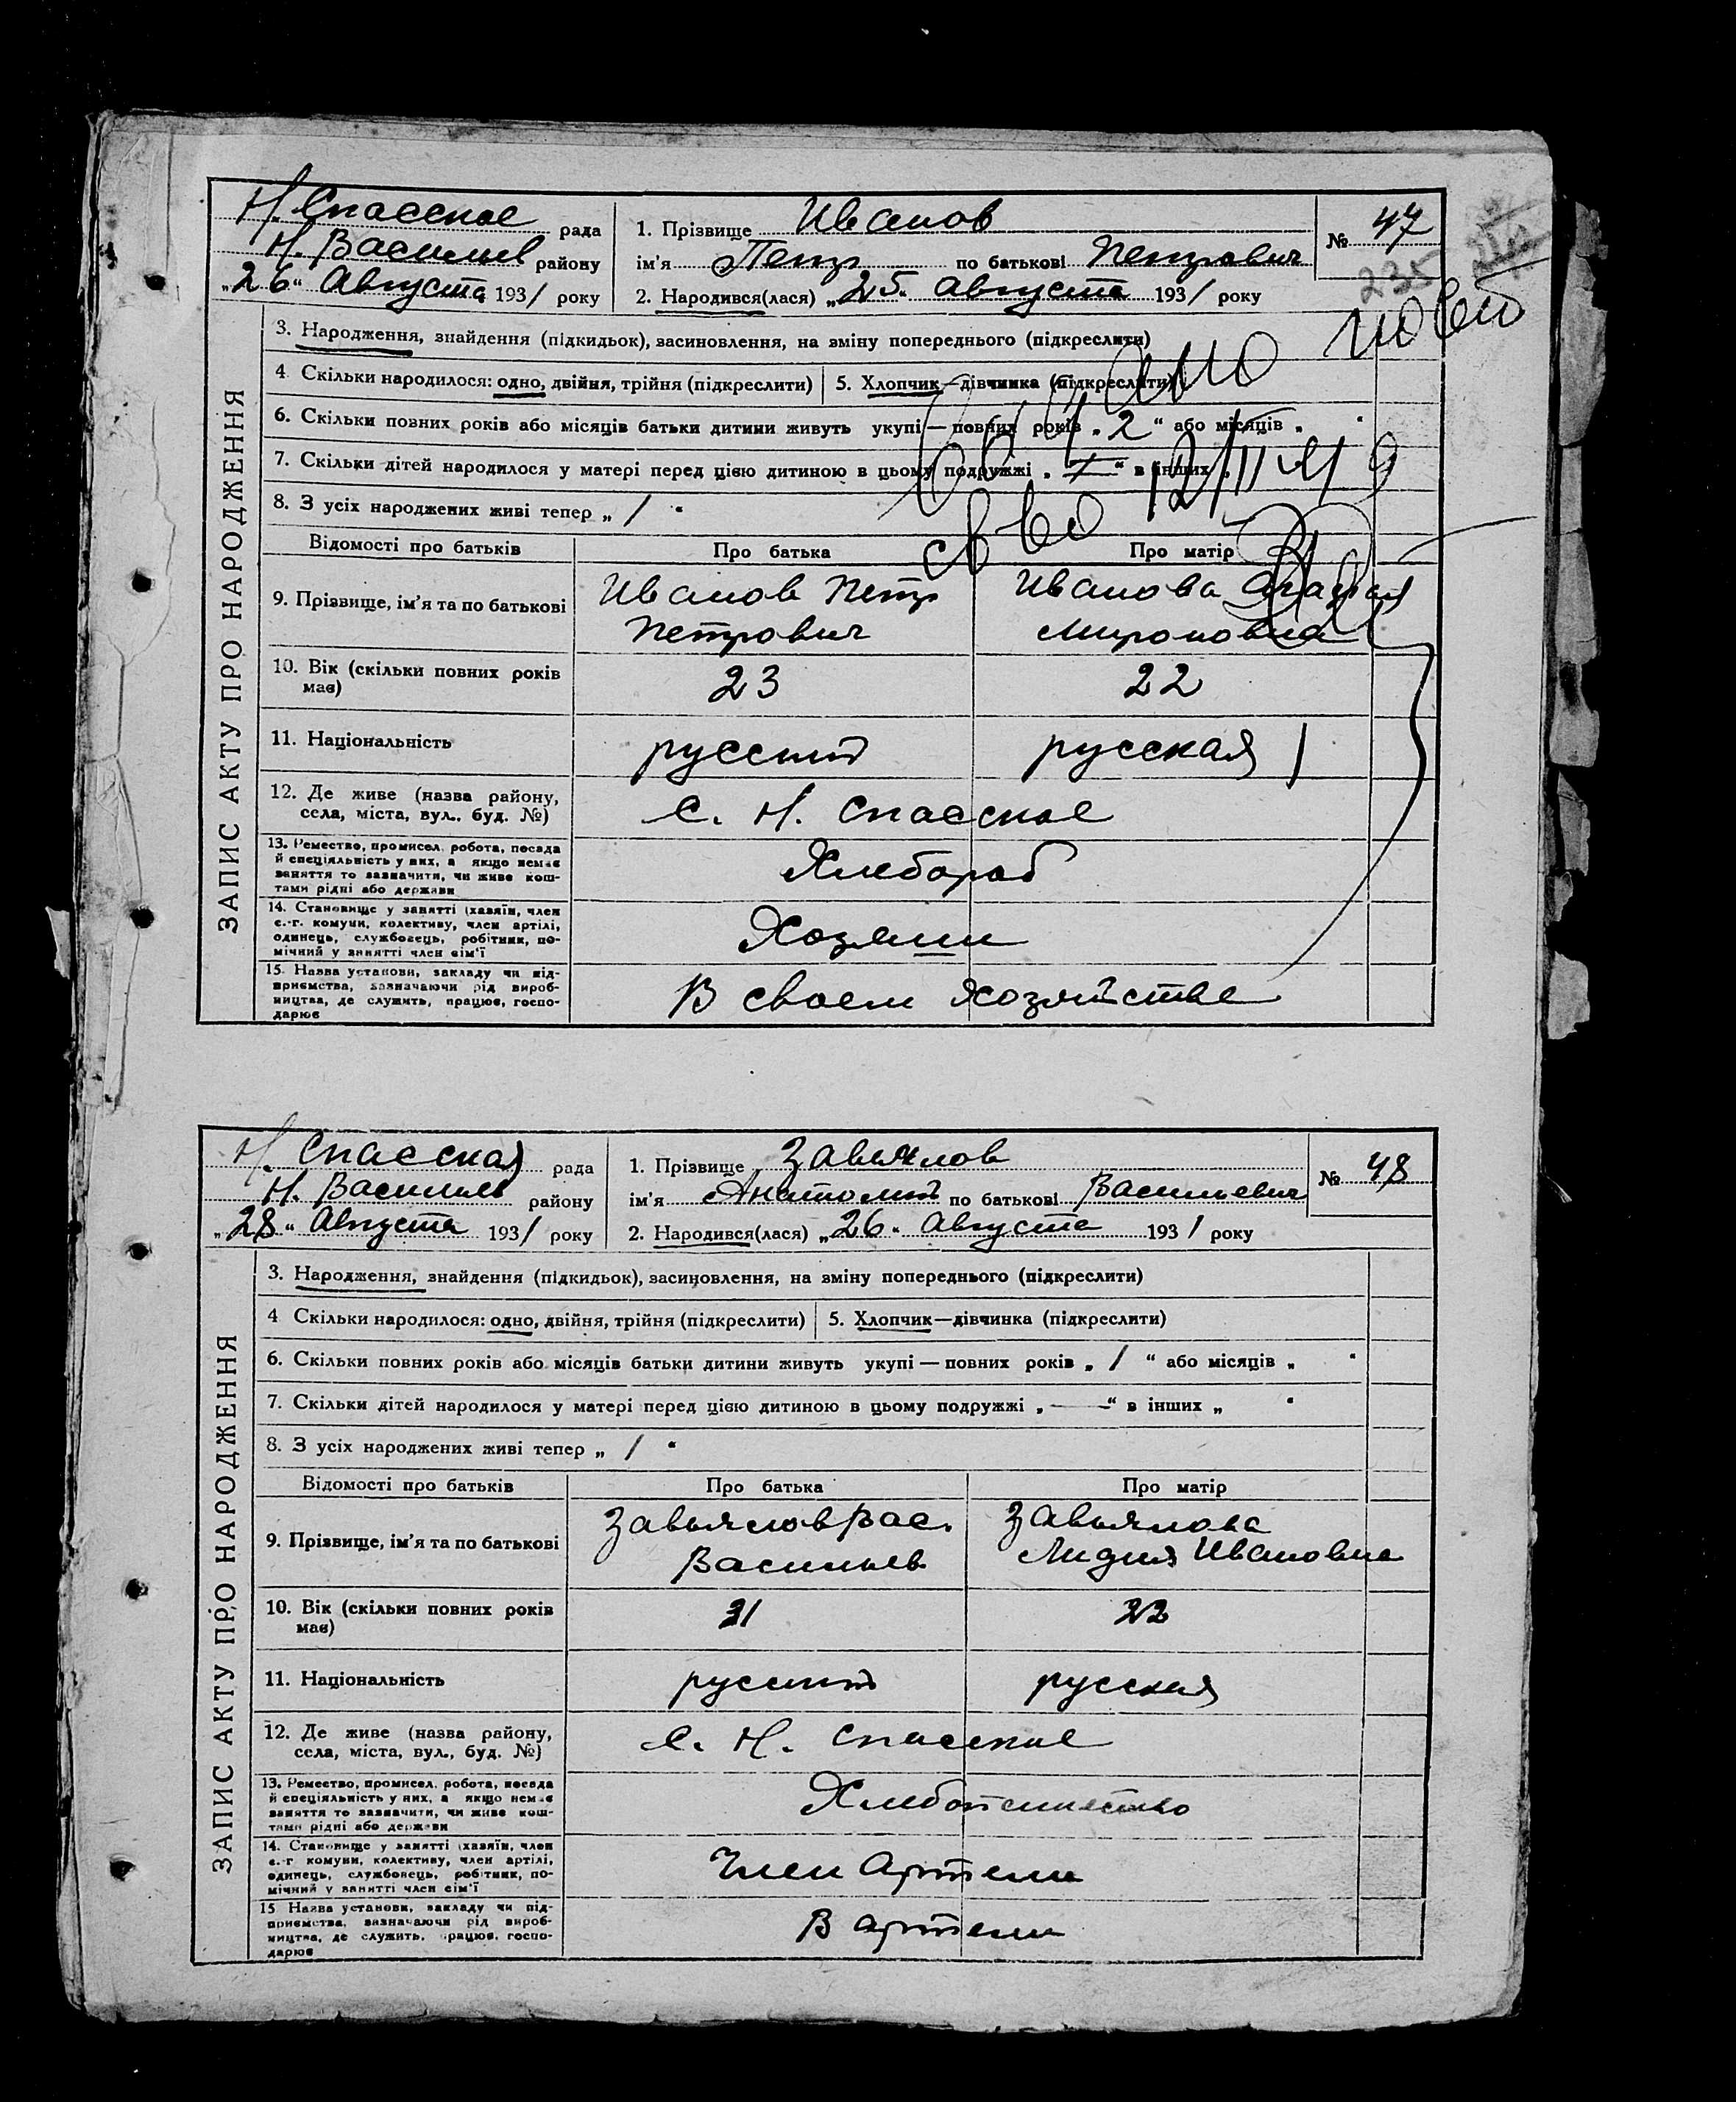 Н. Спасское рада
Н. Васильев району
„26“ Августа 1931 року
1. Прізвище Иванов
ім'я Петр по батькові Петрович
2. Народився(лася) „25“ Августа 1931 року
№ 47
235
ЗАПИС АКТУ ПРО НАРОДЖЕННЯ
3. Народження, знайдення (підкидьок), засиновлення, на зміну попереднього (підкреслити)
4 Скільки народилося: одно, двійня, трійня (підкреслити) 5. Хлопчик—дівчинка (підкреслити)
6. Скільки повних років або місяців батьки дитини живуть укупі — повних років „2“ або місяців „ “
7. Скільки дітей народилося у матері перед цією дитиною в цьому подружжі „ “ в інших
8. З усіх народжених живі тепер „ / “
Відомості про батьків Про батька Про матір
9. Прізвище, ім'я та по батькові
Иванов Петр
Петрович
Иванова Агафия
Мироновна
10. Вік (скільки повних років має) 23 22
11. Національність русский русская
12. Де живе (назва району,
села, міста, вул., буд. №)
с. Н. Спасское
13. Ремество, промисел, робота, посада
й спеціяльність у них, а якщо немає
заняття то зазначити, чи живе кош-
тами рідні або держави
Хлебороб
14. Становище у занятті (хазяїн, член
с.-г. комуни, колективу, член артілі,
одинець, службовець, робітник, по-
мічний у занятті член сім'ї
Хозяин
15. Назва установи, закладу чи під-
приємства, зазначаючи рід вироб-
ництва, де служить, працює, госпо-
дарює
В своем хозяйстве
Н. Спасская рада
Н. Васильев району
„28“ Августа 1931 року
1. Прізвище Завьялов
ім'я Анатолий по батькові Васильевич
2. Народився(лася) „26“ Августа 1931 року
№ 48
ЗАПИС АКТУ ПРО НАРОДЖЕННЯ
3. Народження, знайдення (підкидьок), засиновлення, на зміну попереднього (підкреслити)
4 Скільки народилося: одно, двійня, трійня (підкреслити) 5. Хлопчик—дівчинка (підкреслити)
6. Скільки повних років або місяців батьки дитини живуть укупі — повних років „ / “ або місяців „ “
7. Скільки дітей народилося у матері перед цією дитиною в цьому подружжі „ — “ в інших „ “
8. З усіх народжених живі тепер „ / “
Відомості про батьків Про батька Про матір
9. Прізвище, ім'я та по батькові
Завьялов Вас.
Васильев
Завьялова
Лидия Ивановна
10. Вік (скільки повних років має) 21 22
11. Національність русский русская
12. Де живе (назва району,
села, міста, вул., буд. №)
с. Н. Спасское
13. Ремество, промисел, робота, посада
й спеціяльність у них, а якщо немає
заняття то зазначити, чи живе кош-
тами рідні або держави
Хлебопашество
14. Становище у занятті (хазяїн, член
с.-г. комуни, колективу, член артілі,
одинець, службовець, робітник, по-
мічний у занятті член сім'ї
Член Артели
15 Назва установи, закладу чи під-
приємства, зазначаючи рід вироб-
ництва, де служить, працює, госпо-
дарює
В артели